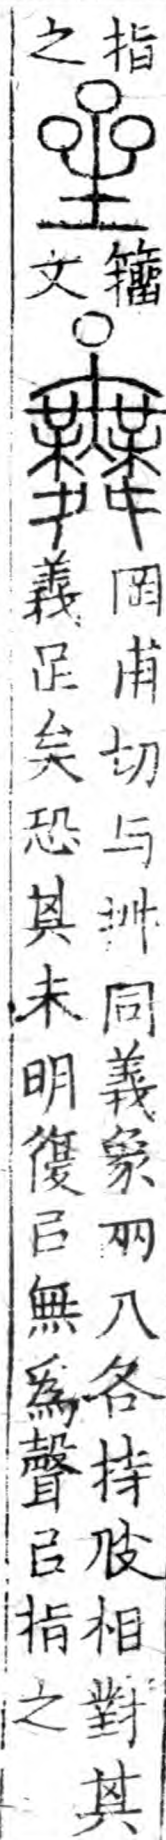 指
之
籀
文
罔甫切与同義象兩人各持相對其
義足矣恐其未明復㠯無爲聲㠯指之